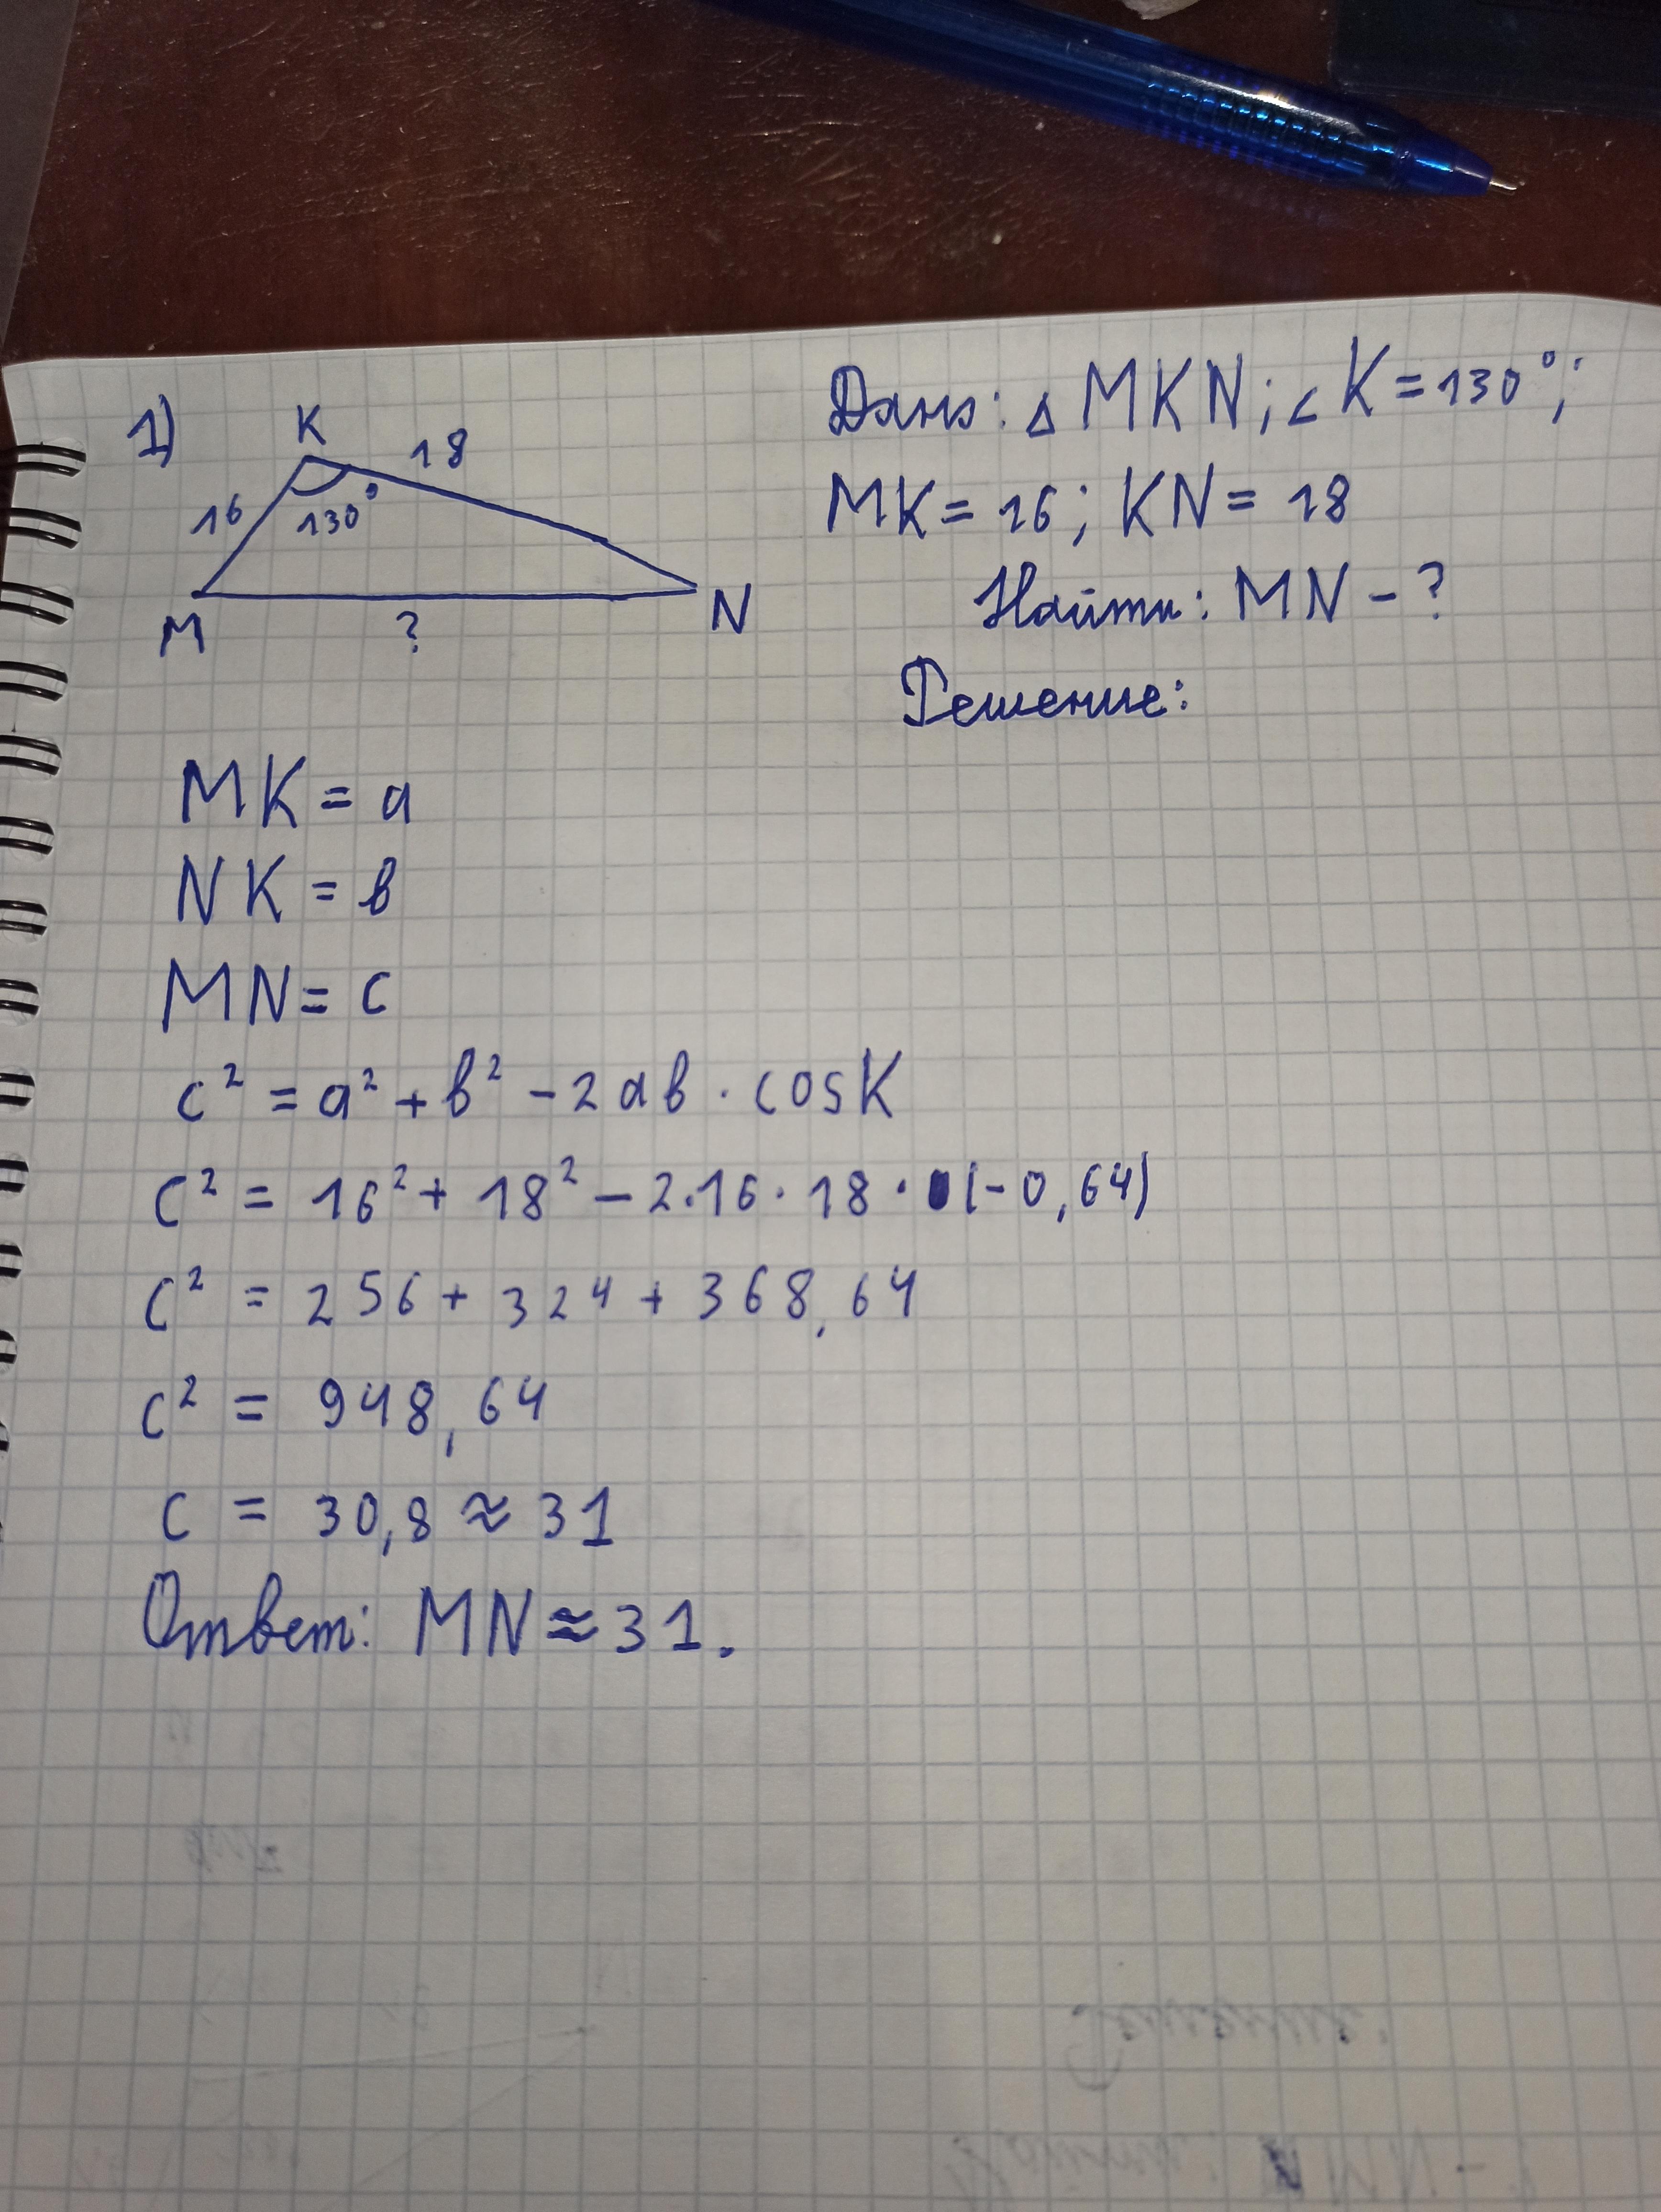 1)
K
18
16
130°
M
?
N
Дано: △ MKN; ∠K = 130°;
MK = 16; KN = 18
Найти: MN - ?
Решение:
MK = a
NK = b
MN = c
c² = a² + b² - 2ab · cosK
c² = 16² + 18² - 2·16·18·(-0,64)
c² = 256 + 324 + 368,64
c² = 948,64
c = 30,8 ≈ 31
Ответ: MN ≈ 31.